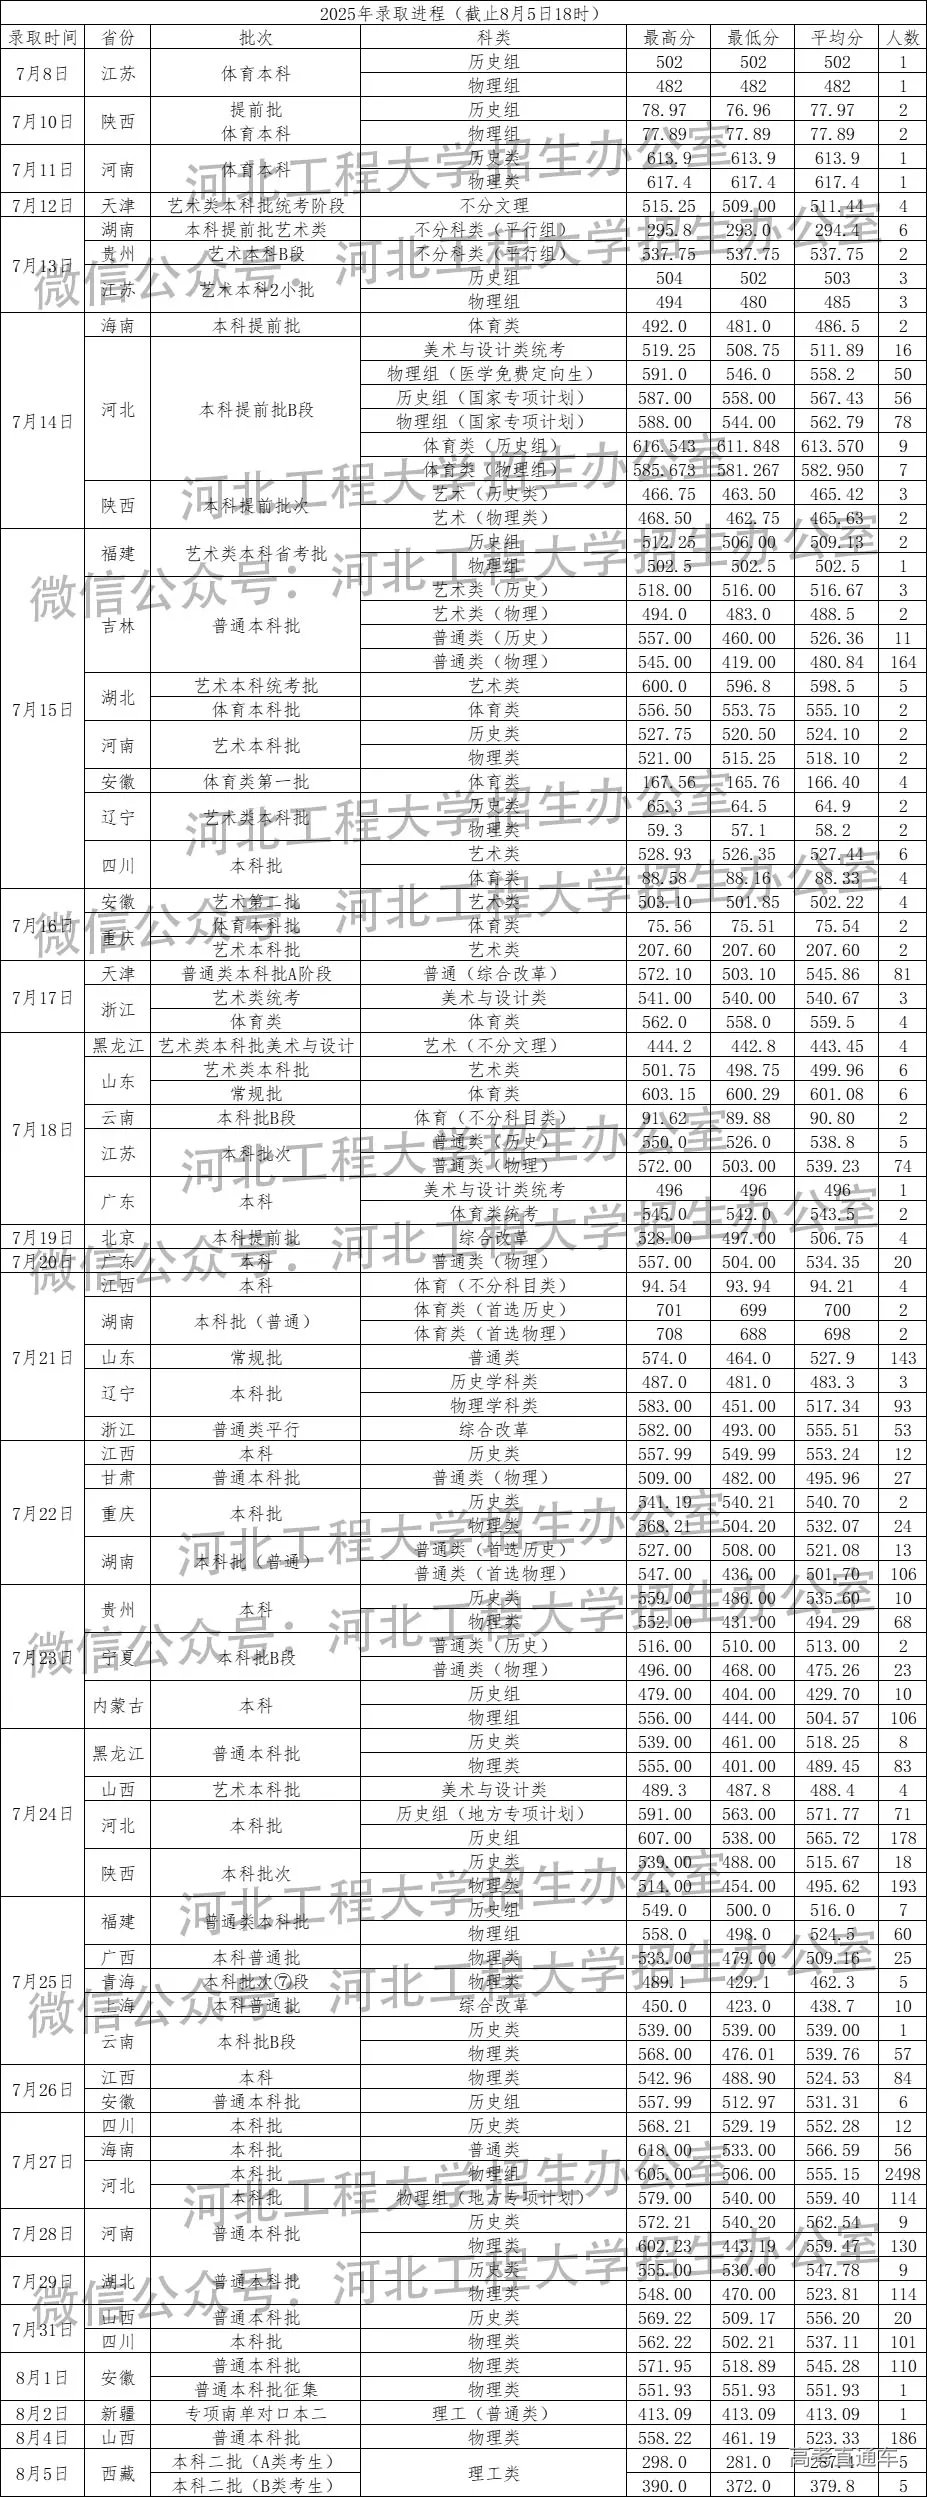 2025年录取进程（截止8月5日18时）
录取时间 省份 批次 科类 最高分 最低分 平均分 人数
7月8日 江苏 体育本科 历史组 502 502 502 1
物理组 482 482 482 1
7月10日 陕西 提前批 体育本科 历史组 78.97 76.96 77.97 2
物理组 77.89 77.89 77.89 2
7月11日 河南 体育本科 历史类 613.9 613.9 613.9 1
物理类 617.4 617.4 617.4 1
7月12日 天津 艺术类本科批统考阶段 不分文理 515.25 509.00 511.44 4
7月13日 湖南 本科提前批艺术类 不分科类（平行组） 295.8 293.0 294.4 6
贵州 艺术本科B段 不分科类（平行组） 537.75 537.75 537.75 2
江苏 艺术本科2小批 历史组 504 502 503 3
物理组 494 480 485 3
7月14日 海南 本科提前批 体育类 492.0 481.0 486.5 2
河北 本科提前批B段 美术与设计类统考 519.25 508.75 511.89 16
物理组（医学免费定向生） 591.0 546.0 558.2 50
历史组（国家专项计划） 587.00 558.00 567.43 56
物理组（国家专项计划） 588.00 544.00 562.79 78
体育类（历史组） 616.543 611.848 613.570 9
体育类（物理组） 585.673 581.267 582.950 7
陕西 本科提前批次 艺术（历史类） 466.75 463.50 465.42 3
艺术（物理类） 468.50 462.75 465.63 2
7月15日 福建 艺术类本科省考批 历史组 512.25 506.00 509.13 2
物理组 502.5 502.5 502.5 1
吉林 普通本科批 艺术类（历史） 518.00 516.00 516.67 3
艺术类（物理） 494.0 483.0 488.5 2
普通类（历史） 557.00 460.00 526.36 11
普通类（物理） 545.00 419.00 480.84 164
湖北 艺术本科统考批 艺术类 600.0 596.8 598.5 5
体育本科批 体育类 556.50 553.75 555.10 2
河南 艺术本科批 历史类 527.75 520.50 524.10 2
物理类 521.00 515.25 518.10 2
安徽 体育类第一批 体育类 167.56 165.76 166.40 4
辽宁 艺术类本科批 历史类 65.3 64.5 64.9 2
物理类 59.3 57.1 58.2 2
四川 本科批 艺术类 528.93 526.35 527.44 6
体育类 88.58 88.16 88.33 4
7月16日 安徽 艺术第二批 艺术类 503.10 501.85 502.22 4
重庆 体育本科批 体育类 75.56 75.51 75.54 2
艺术本科批 艺术类 207.60 207.60 207.60 2
7月17日 天津 普通类本科批A阶段 普通（综合改革） 572.10 503.10 545.86 81
浙江 艺术类统考 美术与设计类 541.00 540.00 540.67 3
体育类 体育类 562.0 558.0 559.5 4
7月18日 黑龙江 艺术类本科批美术与设计 艺术（不分文理） 444.2 442.8 443.45 4
山东 艺术类本科批 艺术类 501.75 498.75 499.96 6
常规批 体育类 603.15 600.29 601.08 6
云南 本科批B段 体育（不分科目类） 91.62 89.88 90.80 2
江苏 本科批次 普通类（历史） 550.0 526.0 538.8 5
普通类（物理） 572.00 503.00 539.23 74
广东 本科 美术与设计类统考 496 496 496 1
体育类统考 545.0 542.0 543.5 2
7月19日 北京 本科提前批 综合改革 528.00 497.00 506.75 4
7月20日 广东 本科 普通类（物理） 557.00 504.00 534.35 20
7月21日 江西 本科 体育（不分科目类） 94.54 93.94 94.21 4
湖南 本科批（普通） 体育类（首选历史） 701 699 700 2
体育类（首选物理） 708 688 698 2
山东 常规批 普通类 574.0 464.0 527.9 143
辽宁 本科批 历史学科类 487.0 481.0 483.3 3
物理学科类 583.00 451.00 517.34 93
浙江 普通类平行 综合改革 582.00 493.00 555.51 53
7月22日 江西 本科 历史类 557.99 549.99 553.24 12
甘肃 普通本科批 普通类（物理） 509.00 482.00 495.96 27
重庆 本科批 历史类 541.19 540.21 540.70 2
物理类 568.21 504.20 532.07 24
湖南 本科批（普通） 普通类（首选历史） 527.00 508.00 521.08 13
普通类（首选物理） 547.00 436.00 501.70 106
7月23日 贵州 本科 历史类 559.00 486.00 535.60 10
物理类 552.00 431.00 494.29 68
宁夏 本科批B段 普通类（历史） 516.00 510.00 513.00 2
普通类（物理） 496.00 468.00 475.26 23
内蒙古 本科 历史组 479.00 404.00 429.70 10
物理组 556.00 444.00 504.57 106
7月24日 黑龙江 普通本科批 历史类 539.00 461.00 518.25 8
物理类 555.00 401.00 489.45 83
山西 艺术本科批 美术与设计类 489.3 487.8 488.4 4
河北 本科批 历史组（地方专项计划） 591.00 563.00 571.77 71
历史组 607.00 538.00 565.72 178
陕西 本科批次 历史类 539.00 488.00 515.67 18
物理类 514.00 454.00 495.62 193
7月25日 福建 普通类本科批 历史组 549.0 500.0 516.0 7
物理组 558.0 498.0 524.5 60
广西 本科普通批 物理类 533.00 479.00 509.16 25
青海 本科批次⑦段 物理类 489.1 429.1 462.3 5
上海 本科普通批 综合改革 450.0 423.0 438.7 10
云南 本科批B段 历史类 539.00 539.00 539.00 1
物理类 568.00 476.01 539.76 57
7月26日 江西 本科 物理类 542.96 488.90 524.53 84
安徽 普通本科批 历史组 557.99 512.97 531.31 6
7月27日 四川 本科批 历史类 568.21 529.19 552.28 12
海南 本科批 普通类 618.00 533.00 566.59 56
河北 本科批 物理组 605.00 506.00 555.15 2498
本科批 物理组（地方专项计划） 579.00 540.00 559.40 114
7月28日 河南 普通本科批 历史类 572.21 540.20 562.54 9
物理类 602.23 443.19 559.47 130
7月29日 湖北 普通本科批 历史类 555.00 530.00 547.78 9
物理类 548.00 470.00 523.81 114
7月31日 山西 普通本科批 历史类 569.22 509.17 556.20 20
四川 本科批 物理类 562.22 502.21 537.11 101
8月1日 安徽 普通本科批 物理类 571.95 518.89 545.28 110
普通本科批征集 物理类 551.93 551.93 551.93 1
8月2日 新疆 专项南单对口本二 理工（普通类） 413.09 413.09 413.09 1
8月4日 山西 普通本科批 物理类 558.22 461.19 523.33 186
8月5日 西藏 本科二批（A类考生） 理工类 298.0 281.0 287.4 5
本科二批（B类考生） 390.0 372.0 379.8 5
河北工程大学招生办公室
微信公众号：河北工程大学招生办公室
河北工程大学招生办公室
微信公众号：河北工程大学招生办公室
河北工程大学招生办公室
微信公众号：河北工程大学招生办公室
河北工程大学招生办公室
微信公众号：河北工程大学招生办公室
河北工程大学招生办公室
微信公众号：河北工程大学招生办公室
河北工程大学招生办公室
微信公众号：河北工程大学招生办公室
河北工程大学招生办公室
微信公众号：河北工程大学招生办公室
高考直通车